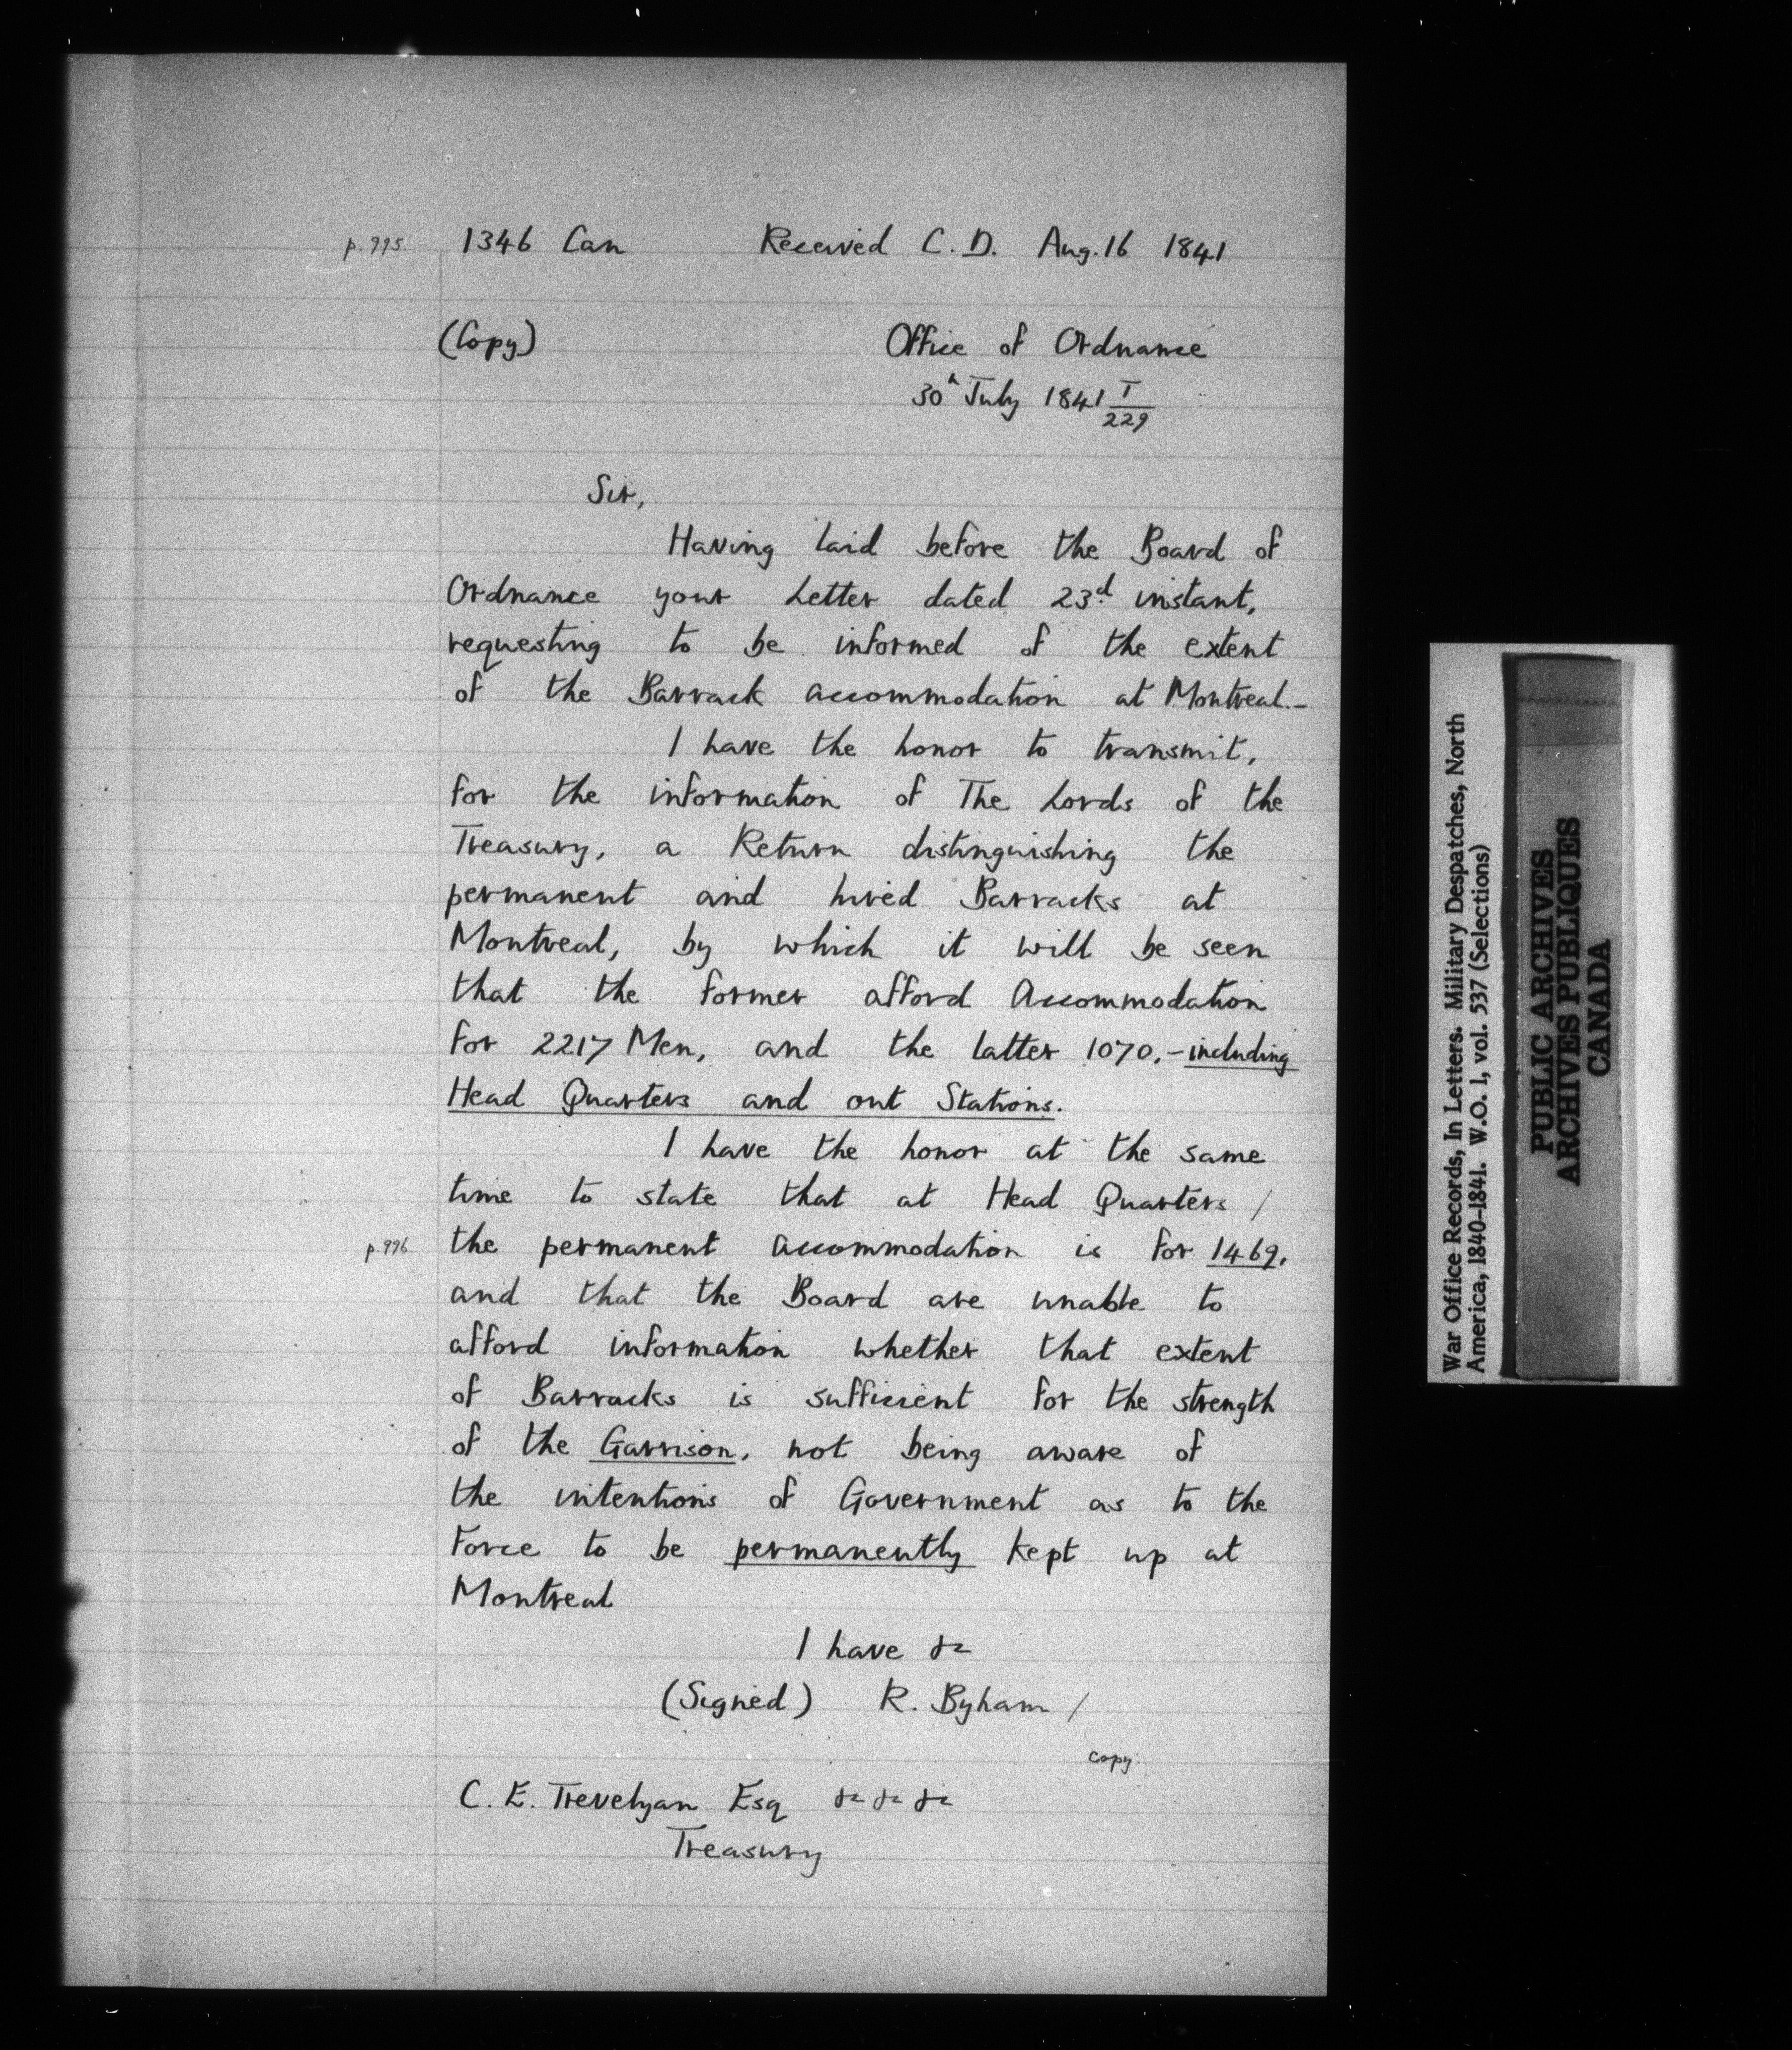 p.995 1346 Can Received C. D. Aug. 16 1841
(Copy) Office of Ordnance
30h July 1841 T/229
Sir,
Having laid before the Board of
Ordnance your Letter dated 23d. instant,
requesting to be informed of the extent
of the Barrack accommodation at Montreal.-
I have the honor to transmit,
for the information of The Lords of the
Treasury, a Return distinguishing the
permanent and hired Barracks at
Montreal, by which it will be seen
that the former afford Accommodation
for 2217 Men, and the latter 1070,- including
Head Quarters and out Stations.
I have the honor at the same
time to state that at Head Quarters /
p.996 the permanent accommodation is for 1469,
and that the Board are unable to
afford information whether that extent
of Barracks is sufficient for the strength
of the Garrison, not being aware of
the intentions of Government as to the
Force to be permanently kept up at
Montreal
I have &c
(Signed) R. Byham /
copy.
C. E. Trevelyan Esq &c &c &c
Treasury
War Office Records, In Letters. Military Despatches, North
America, 1840-1841. W.O. 1, vol. 537 (Selections)
PUBLIC ARCHIVES
ARCHIVES PUBLIQUES
CANADA